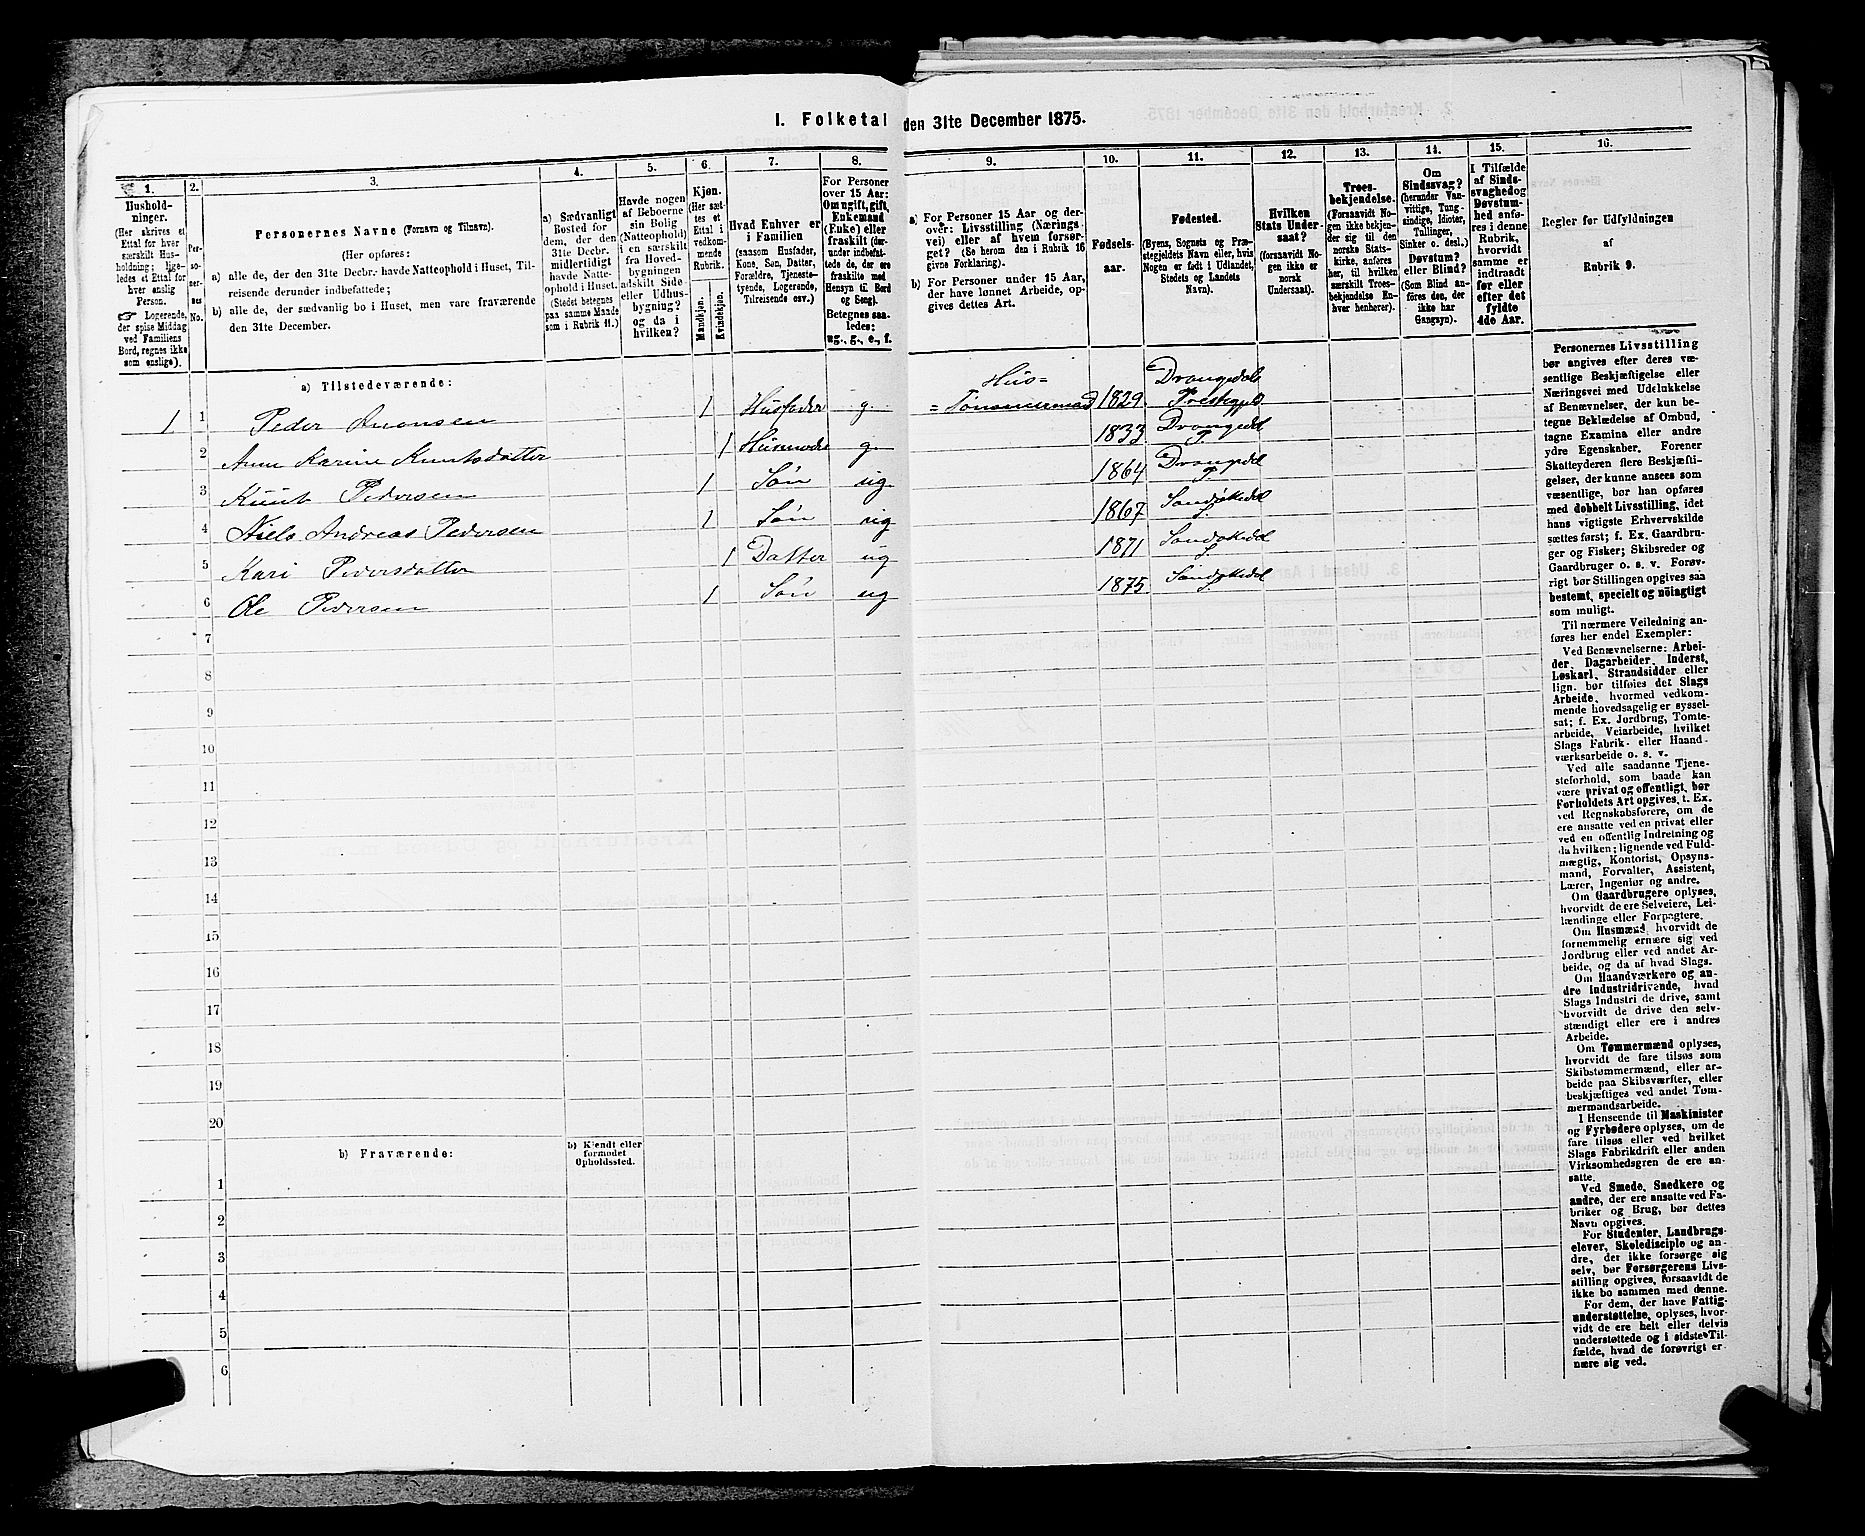 I. Folketal den 31te December 1875.
1. 2. 3. 4. 5. 6. 7. 8. 9. 10. 11. 12. 13. 14. 15. 16.
Husholdninger.
(Her skrives et Ettal for hver særskilt Husholdning; ligeledes et Ettal for hver enslig Person.
☞ Logerende, der spise Middag ved Familiens Bord, regnes ikke som enslige).
Personernes No.
Personernes Navne (Fornavn og Tilnavn).
(Her opføres:
a) alle de, der den 31te Decbr. havde Natteophold i Huset, Tilreisende derunder indbefattede;
b) alle de, der sædvanlig bo i Huset, men vare fraværende den 31te December.
a) Sædvanligt Bosted for dem, der den 31te Decbr. midlertidigt havde Natteophold i Huset.
(Stedet betegnes paa samme Maade som i Rubrik 11.)
Havde nogen af Beboerne sin Bolig (Natteophold) i en særskilt fra Hovedbygningen adskilt Side eller Udhusbygning? og da i hvilken?
Kjøn.
(Her sættes et Ettal i vedkommende Rubrik.
Mandkjøn. Kvindekjøn.
Hvad Enhver er i Familien
(saasom Husfader, Kone, Søn, Datter, Forældre, Tjenestetyende, Logerende, Tilreisende osv.)
For Personer over 15 Aar: Om ugift, gift, Enkemand (Enke) eller fraskilt (derunder indbefattede de, der ere fraskilte med Hensyn til Bord og Seng).
Betegnes saaledes:
ug., g., e., f.
a) For Personer 15 Aar og derover: Livsstilling (Næringsvei) eller af hvem forsørget? (Se herom den i Rubrik 16 givne Forklaring).
b) For Personer under 15 Aar, der have lønnet Arbeide, opgives dettes Art.
Fødselsaar.
Fødested.
(Byens, Sognets og Præstegjeldets Navn, eller, hvis Nogen er født i Udlandet, Stedets og Landets Navn).
Hvilken Stats Undersaat?
(forsaavidt Nogen ikke er norsk Undersaat).
Troesbekjendelse.
(Forsaavidt Nogen ikke bekjender sig til den norske Statskirke, anføres her, til hvilken særskilt Troesbekjendelse Enhver henhører).
Om Sindssvag? (herunder Vanvittige, Tungsindige, Idioter, Tullinger, Sinker o. desl.)
Døvstum? eller Blind?
(Som Blind anføres den, der ikke har Gangsyn).
I Tilfælde af Sindssvaghed og Døvstumhed anføres i denne Rubrik, hvorvidt samme er indtraadt før eller efter det fyldte 4de Aar.
Regler for Udfyldningen af Rubrik 9.
a) Tilstedeværende:
1 1 Peder 1 Husfader g. Hus= =Tømmermand 1829 Drangedals Prestegjeld
2 Anne Karine Knutsdatter 1 Husmoder g. 1833 Drangedal P.
3 Knut Pedersen 1 Søn ug. 1864 Drangedal P.
4 Niels Andreas Pedersen 1 Søn ug 1867 Sandøkedal S.
5 Kari Pedersdatter 1 Datter ug 1871 Sandøkedal S.
6 Ole Pedersen 1 Søn ug 1875 Sandøkedal S.
7
8
9
10
11
12
13
14
15
16
17
18
19
20
b) Fraværende: b) Kjendt eller formodet Opholdssted.
1
2
3
4
5
6
Personernes Livsstilling
bør angives efter deres væsentlige
Beskjæftigelse eller
Næringsvei med Udelukkelse
af Benævnelser, der kun betegne
Beklædelse af Ombud,
tagne Examina eller andre
ydre Egenskaber. Forener
Skatteyderen flere Beskjæftigelser,
der kunne ansees som
væsentlige, bør han opføres
med dobbelt Livsstilling, idet
hans vigtigste Erhvervskilde
sættes først; f. Ex. Gaardbruger
og Fisker; Skibsreder og
Gaardbruger o. s. v. Forøvrigt
bør Stillingen opgives saa
bestemt, specielt og nöiagtigt
som muligt.
Til nærmere Veiledning anføres
her endel Exempler:
Ved Benævnelserne: Arbeider,
Dagarbeider, Inderst,
Løskarl, Strandsidder eller
lign. bør tilføies det Slags
Arbeide, hvormed vedkommende
hovedsagelig er sysselsat;
f. Ex. Jordbrug, Tomtearbeide,
Veiarbeide, hvilket
Slags Fabrik- eller Haandværksarbeide
o. s. v.
Ved alle saadanne Tjenesteforhold,
som baade kan
være privat og offentligt, bør
Forholdets Art opgives, t. Ex.
ved Regnskabsførere, om de
ere ansatte ved en privat eller
ved en offentlig Indretning og
da hvilken; lignende ved Fuldmægtig,
Kontorist, Opsynsmand,
Forvalter, Assistent,
Lærer, Ingeniør og andre.
Om Gaardbrugere oplyses,
hvorvidt de ere Selveiere, Leilændinge
eller Forpagtere.
Om Husmænd, hvorvidt de
fornemmelig ernære sig ved
Jordbrug eller ved andet Arbeide,
og da af hvad Slags.
Om Haandværkere og andre
Industridrivende, hvad
Slags Industri de drive, samt
hvorvidt de drive den selvstændigt
eller ere i andres
Arbeide.
Om Tømmermænd oplyses,
hvorvidt de fare tilsøs som
Skibstømmermænd, eller arbeide
paa Skibsværfter, eller
beskjæftiges ved andet Tømmermandsarbeide.
I Henseende til Maskinister
og Fyrbødere oplyses, om de
fare tilsøs eller ved hvilket
Slags Fabrikdrift eller anden
Virksomhedsgren de ere ansatte.
Ved Smede, Snedkere og
andre, der ere ansatte ved Fabriker
og Brug, bør dettes
Navn opgives.
For Studenter, Landbrugselever,
Skoledisciple og andre,
der ikke forsørge sig
selv, bør Forsørgerens Livsstilling
opgives, forsaavidt de
ikke bo sammen med denne.
For dem, der have Fattigunderstøttelse,
oplyses, hvorvidt
de ere helt eller delvis
understøttede og i sidste Tilfælde,
hvad de forøvrigt ernære
sig ved.